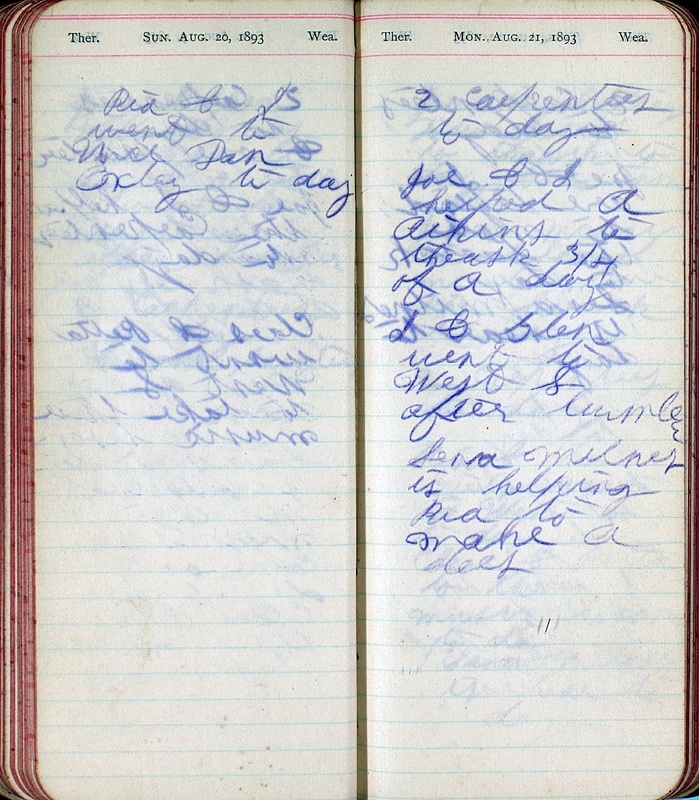 Ther. SUN. AUG. 20, 1893 Wea.
Ria & I
went to
Dan
Oxley to day
Ther. MON. AUG. 21, 1893 Wea.
2 Carpenters
to day
Joe & I
helped A
Aikins to
3/4
of a day
I & Glen
went to
West
after lumber
Lena Milner
is helping
Ria to
make a